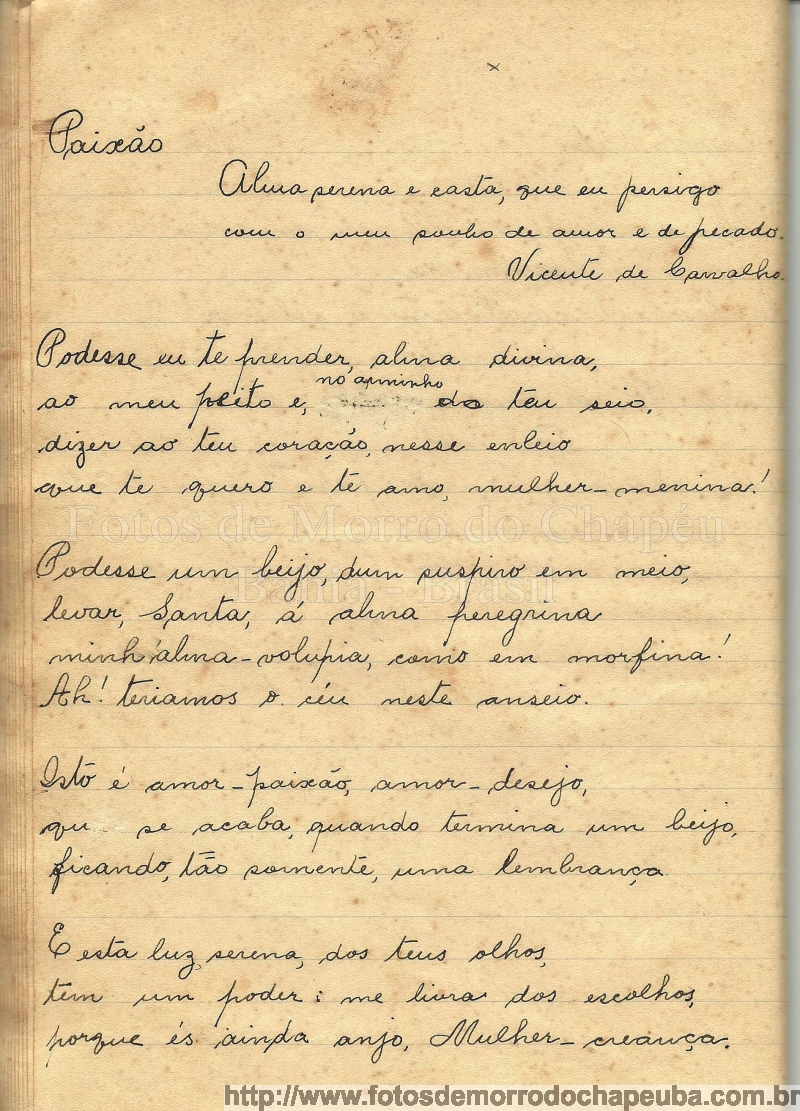 x
Paixão
Alma serena e casta, que eu persigo
com o meu sonho de amor e de pecado.
Vicente de Carvalho.
Podesse eu te prender, alma divina,
no arminho
ao meu peito e, do teu seio,
dizer ao teu coração, nesse enleio
que te quero e te amo, mulher-menina!
Fotos de Morro do Chapéu
Podesse um beijo, dum suspiro em meio,
Bahia - Brasil
levar, Santa, á alma peregrina
minh'alma-volupia, como em morfina!
Ah! teriamos o céu neste anseio.
Isto é amor-paixão, amor-desejo,
qu se acaba, quando termina um beijo,
ficando, tão somente, uma lembrança.
E esta luz serena, dos teus olhos,
tem um poder: me livra dos escolhos,
porque és ainda anjo, Mulher-creança.
http://www.fotosdemorrodochapeuba.com.br